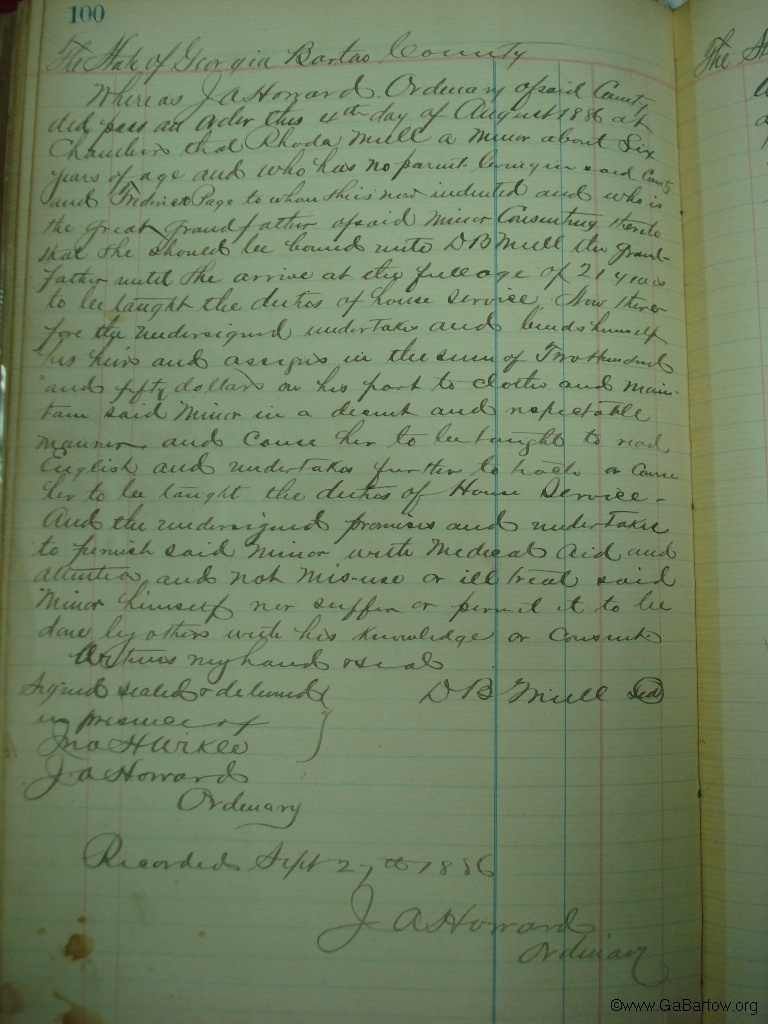 100
The State of Georgia Bartow County
Whereas J A Howard Ordinary of said County
did pass an order this 4th day of August 1886 at
Chambers that Rhoda Mull a minor about Six
years of age and who has no parent living in said County
and Frederick Page to whom she is now indented and who is
the great grandfather of said minor Consenting thereto
that she should be bound unto D B Mull the grand-
father until she arrive at the full age of 21 years
to be taught the duties of house service. Now there-
fore the undersigned undertakes and binds himself
his heirs and assigns in the sum of Two Hundred
and fifty dollars on his part to clothe and main-
tain said minor in a decent and respectable
manner and cause her to be taught to read
English and undertakes further to teach or cause
her to be taught the duties of House Service -
And the undersigned promises and undertakes
to furnish said minor with Medical Aid and
attention and not mis-use or ill treat said
minor himself nor suffer or permit it to be
done by others with his knowledge or consent
Witness my hand & seal
Signed sealed & delivered D B Mull Seal
in presence of
Jno H
J A Howard
Ordinary
Recorded Sept 27th 1886
J A Howard
Ordinary
The
©www.GaBartow.org